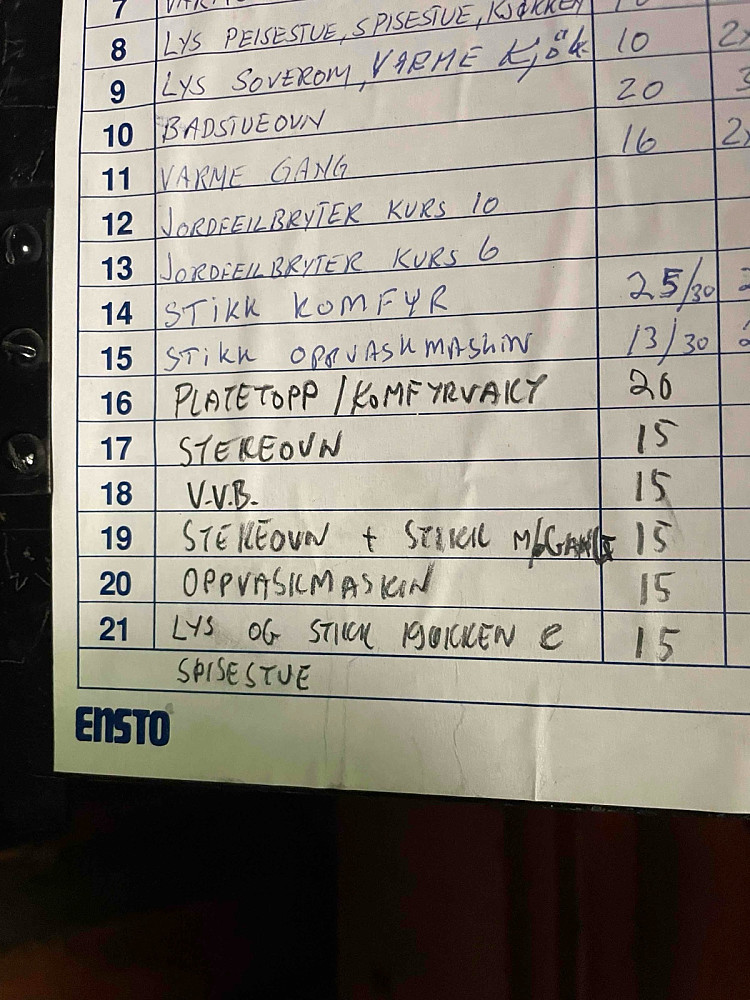 7
8 LYS PEISESTUE, SPISESTUE, KJØKKEN 10 2x
9 LYS SOVEROM, VARME Kjøk 20 3
10 BADSTUEOVN 16 2x
11 VARME GANG
12 JORDFEILBRYTER KURS 10
13 JORDFEILBRYTER KURS 6
14 STIKK KOMFYR 25/30
15 STIKK OPPVASKMASKIN 13/30
16 PLATETOPP / KOMFYRVAKT 20
17 STEKEOVN 15
18 V.V.B. 15
19 STEKEOVN + STIKK M/GANG 15
20 OPPVASKMASKIN 15
21 LYS OG STIKK KJØKKEN e 15
SPISESTUE
ENSTO